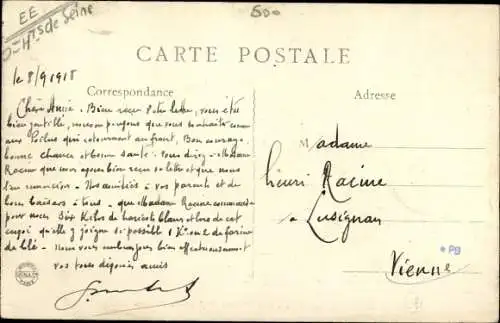 EE
Hts de Seine
500
CARTE POSTALE
le 8/9 1918
Correspondance
Adresse
Chère Amie. Bien reçu votre lettre, vous êtes
bien gentille, nous ne pouvons que vous souhaiter comme
aux Poilus qui retournent au front, Bon courage,
bonne chance et bonne santé. Vous direz à Madame
Racine que nous avons bien reçu sa lettre et que nous
la remercions. Nos amitiés à vos parents et de
bons baisers à tous. que Madame Racine commande
pour nous Kilos de haricots blancs et lors de cet
envoi qu'elle y joigne si possible 1 Ko ou 2 de farine
de blé. Nous vous embrassons bien affectueusement
vos tous dévoués amis
Madame
Henri Racine
à Lusignan
Vienne
*PB